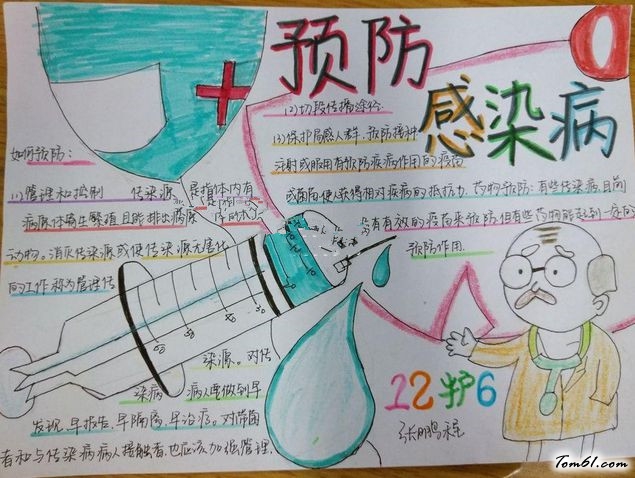 预防
感染病
如何预防:
(1)管理和控制 传染源 是指体内有
病原体寄生繁殖且能排出病原
动物。消灭传染源或使传染源无害化
的工作称为管理传
染源。对传
染病 病人要做到早
发现,早报告,早隔离,早治疗。对带菌
者和与传染病病人接触者,也应该加强管理.
(2)切段传播途径.
(3)保护易感人群.预防接种
注射或服用有预防疾病作用的疫苗
或菌苗,使人获得相对疾病的抵抗力.药物预防:有些传染病,目前
没有有效的疫苗来预防但有些药物能起到一定的
预防作用.
12护6
张鹏
Tom61.com